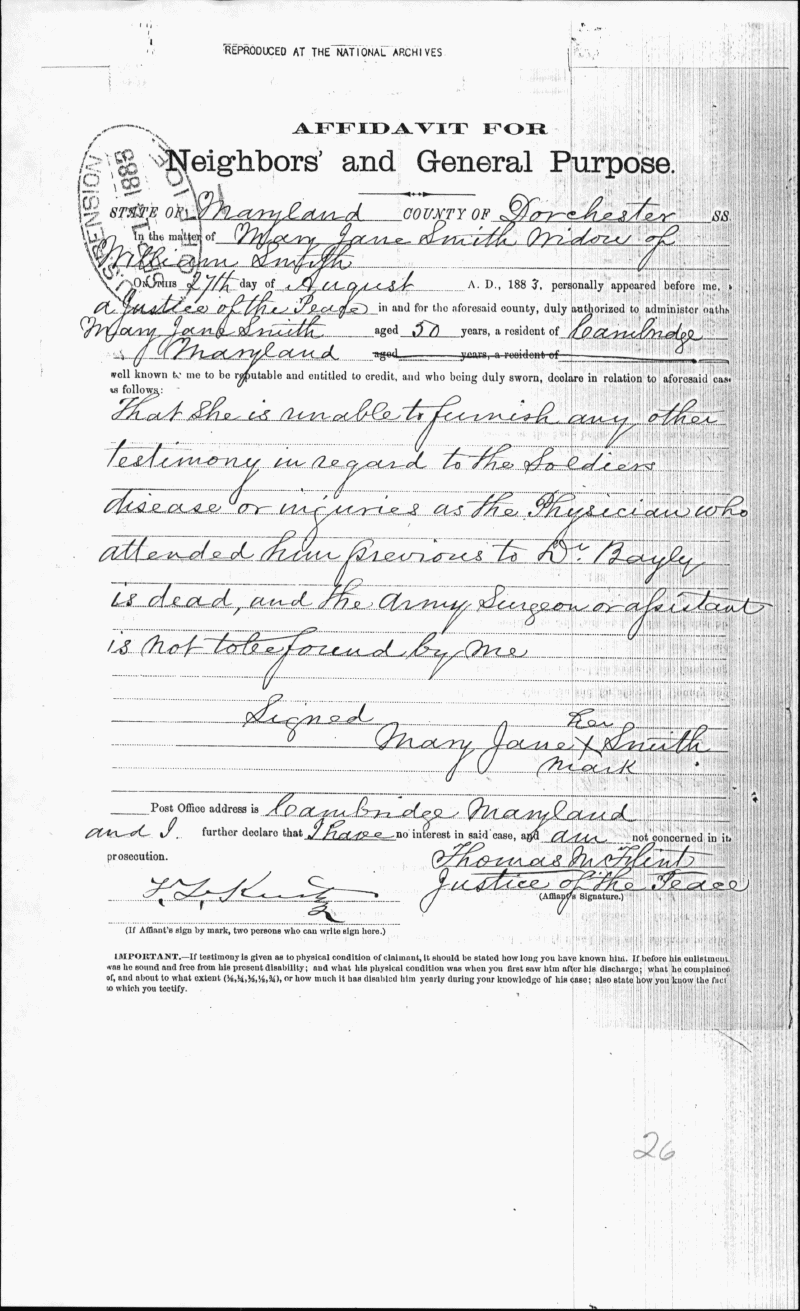 REPRODUCED AT THE NATIONAL ARCHIVES
AFFIDAVIT FOR
Neighbors' and General Purpose.
STATE OF Maryland COUNTY OF Dorchester SS
In the matter of Mary Jane Smith Widow of
William Smith
On this 27th day of August A. D., 1883, personally appeared before me,
a Justice of the Peace in and for the aforesaid county, duly authorized to administer oaths
Mary Jane Smith aged 50 years, a resident of Cambridge
Maryland aged years, a resident of
well known to me to be reputable and entitled to credit, and who being duly sworn, declare in relation to aforesaid case
as follows:
That She is unable to furnish any other
testimony in regard to the Soldiers
disease or injuries as the Physician who
attended him previous to Dr. Bayly
is dead, and the Army Surgeon or assistant
is not to be found by me
Signed
her
Mary Jane X Smith
mark
Post Office address is Cambridge Maryland
and I further declare that I have no interest in said case, and am not concerned in its
prosecution.
Thomas
Justice of the Peace
(Affiant's Signature.)
(If Affiant's sign by mark, two persons who can write sign here.)
IMPORTANT.—If testimony is given as to physical condition of claimant, it should be stated how long you have known him. If before his enlistment
was he sound and free from his present disability; and what his physical condition was when you first saw him after his discharge; what he complained
of, and about to what extent or how much it has disabled him yearly during your knowledge of his case; also state how you know the fact
to which you testify.
26